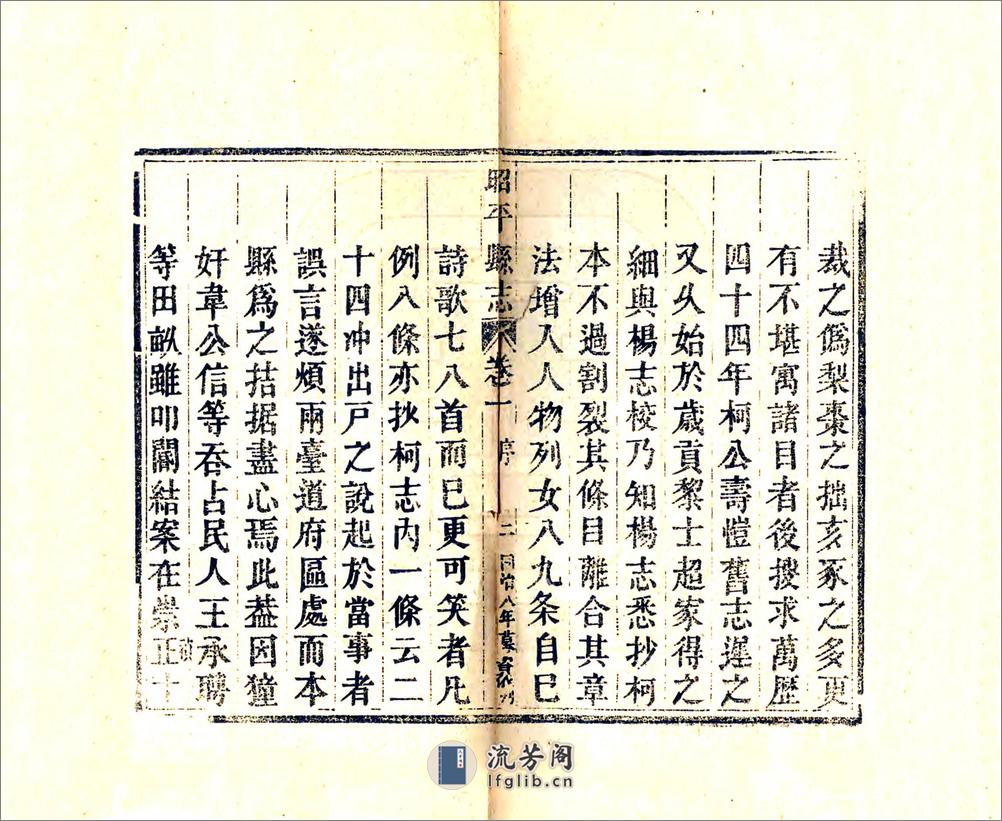 裁之僞梨棗之拙亥豕之多更
有不堪寓諸目者後搜求萬歷
四十四年柯公壽愷舊志遲之
又久始於歲貢黎士超家得之
細與楊志校乃知楊志悉抄柯
本不過割裂其條目離合其章
法增入人物列女八九条自己
昭平縣志 卷一 序 二 同治八年
詩歌七八首而已更可笑者凡
例八條亦抄柯志內一條云二
十四冲出戸之說起於當事者
誤言遂煩兩臺道府區處而本
縣為之拮据盡心焉此葢因獞
奸韋公信等呑占民人王承聘
等田畝雖叩閽結案在崇正十
流芳阁
lfglib.cn